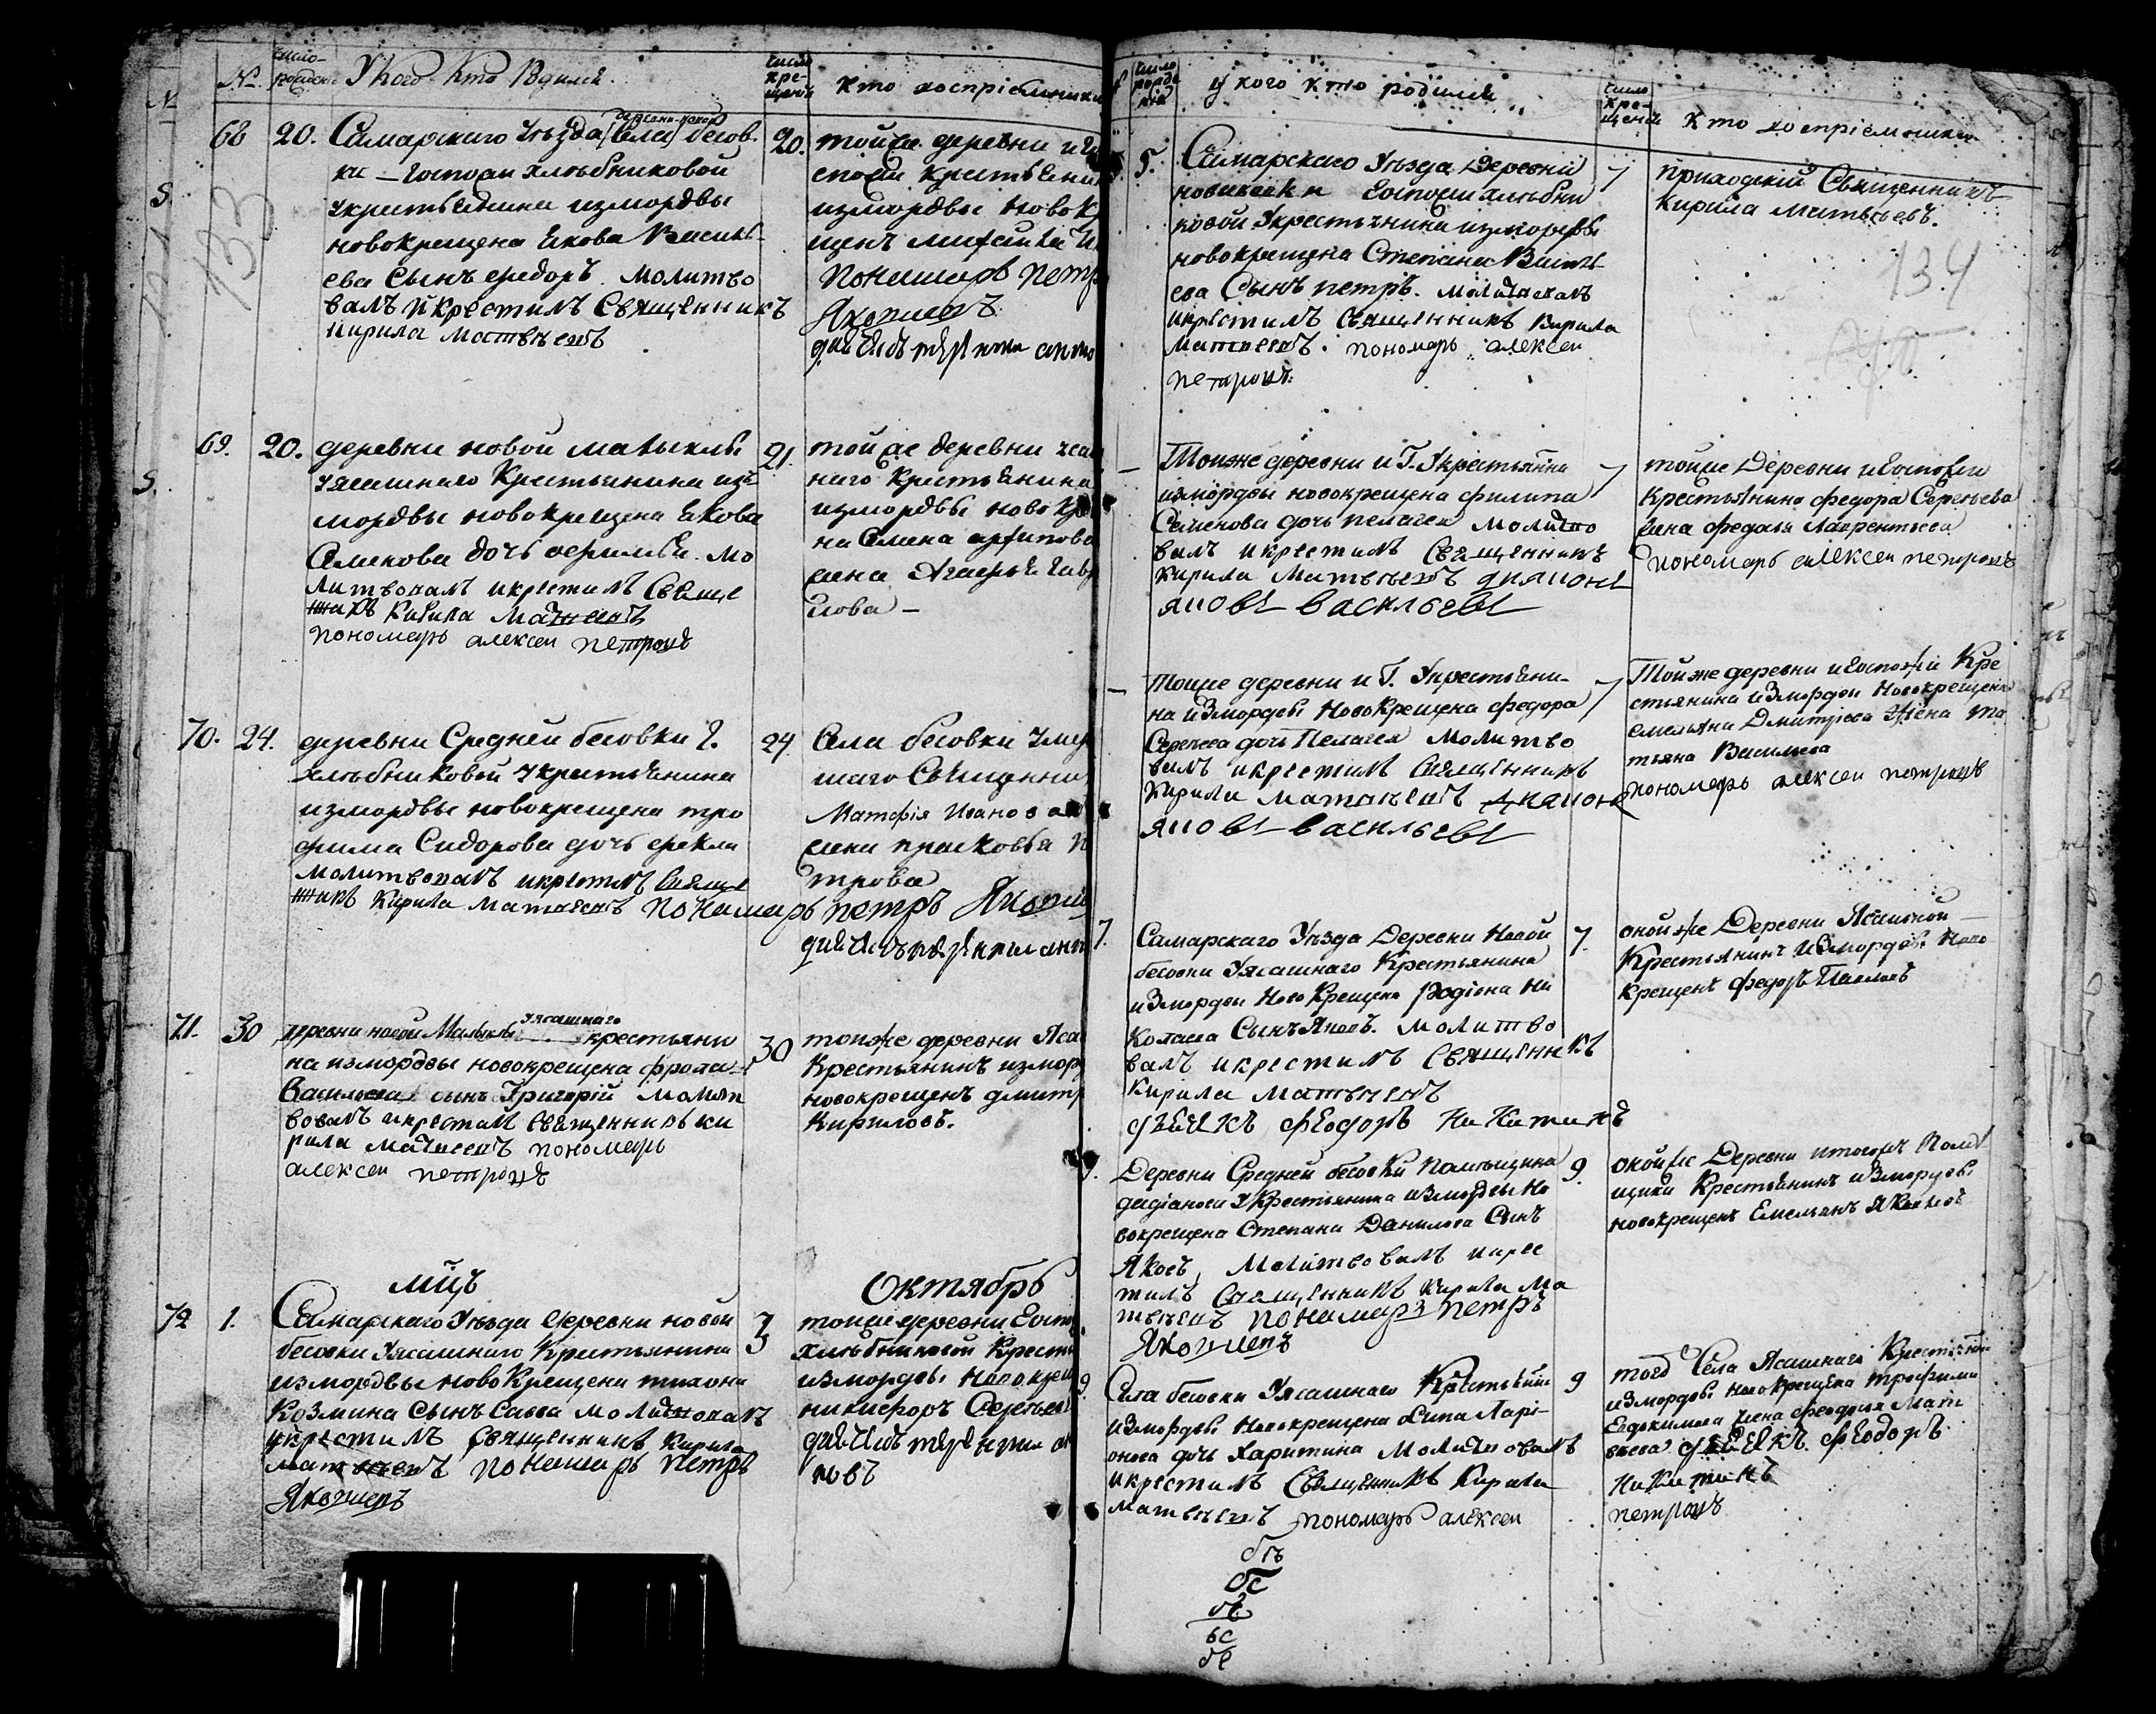 №
число рождения
У кого кто родился
число крещения
кто воспріемники
68 20. Самарскаго уезда села бесов
ки госпожи хлебниковой
у крестьянина измордвы
новокрещена Якова Василь
ева сынъ Федоръ молитво
валъ икрестилъ Священникъ
кирила матвеевъ
20. тойже деревни иго
спожи крестьянин
измордвы новокр
щенъ
пономарь петр
Яковлевъ
69. 20. деревни новой малыклы
уясашнаго крестьянина из
мордвы новокрещена Якова
Семенова дочь ефимья. мо
литвовалъ икрестилъ Свяще
нникъ Кирила Матвеевъ
пономарь алексеи петровъ
21. той же деревни яса
наго крестьянина
измордвы новокр
на Семена архипова
жена Агафья гавр
лова
70. 24. деревни Средней бесовки г.
хлебниковой укрестьянина
измордвы новокрещена тро
фима Сидорова дочь фекла
молитвовалъ икрестилъ Свяще
нникъ Кирила Матвеевъ пономарь петръ Яковле
24 Села бесовки умер
шаго Священни
Матфія Иванова
жена прасковья п
трова
71. 30 деревни новой Малыклы уясашнаго крестьяни
на измордвы новокрещена фрола
Васильева сынъ Григорій молит
вовалъ икрестил священникъ ки
рила матвеевъ пономарь
алексеи петровъ
30 тойже деревни Яса
Крестьянинъ измор
новокрещенъ дмитр
Кириловъ.
мцъ Октябрь
72 1. Самарскаго Уезда деревни новой
бесовки Уясашнаго Крестьянина
измордвы новокрещена тихона
Козмина сынъ Савва молитвовалъ
икрестилъ священникъ Кирила
матвеевъ пономарь петръ
Яковлевъ
3 тойже деревни Госп
хлебниковой Крестья
измордвы новокрещ
никифоръ Сергеевъ
133
число рожде нія
у кого кто родился
число кре щенія
кто воспріемники
134
5. Самарскаго Уезда Деревни
новиковки Госпожи хлебни
ковой Укрестьянина измордвы
новокрещена Степана Василь
ева Сынъ петръ. молитвовалъ
икрестилъ священникъ Кирила
Матвеевъ. пономарь алексеи
петровъ.
7 приходскій Священникъ
Кирила матвеевъ.
Тойже деревни и Г. Укрестьянина
измордвы новокрещена филипа
Семенова дочь пелагея молитво
валъ икрестилъ священникъ
Кирила Матвеевъ диакона
якова васильева
7 тойже Деревни игоспожи
Крестьянина федора Сергеева
жена федосья Лаврентьева
пономарь алексеи петровъ
Тойже деревни и Г. Укрестьяни
на измордвы новокрещена федора
Сергеева дочь Пелагея молитво
валъ икрестилъ священникъ
Кирила Матвеевъ диакона
якова васильева
7 Тойже деревни игоспожи Кре
стьянина измордвы Новокрещена
емельяна Дмитріева жена та
тьяна Васильева
пономарь алексеи петровъ
7. Самарскаго Уезда Деревни Новой
бесовки Уясашнаго Крестьянина
измордвы Новокрещена Родіона Ни
колаева Сынъ Яковъ. молитво
валъ икрестилъ священникъ
Кирила Матвеевъ
дьячекъ феодоръ Никитинъ
7. оной же Деревни Ясашной
Крестьянинъ Измордвы Ново
крещенъ федоръ Павловъ
9. Деревни Средней бесовки помещика
Укрестьянина измордвы но
вокрещена Степана Данилова Сынъ
Яковъ, Молитвовалъ икрес
тилъ священникъ Кирила Ма
твеевъ пономарь петръ
Яковлевъ
9. оной же Деревни итогожъ Поме
щика Крестьянинъ измордвы
новокрещенъ Емельянъ Яковлевъ
9. Села бесовки Уясашнаго Крестьянина
измордвы новокрещена Ларі
онова дочь Харитина Молитвовалъ
икрестилъ Священникъ Кирила
матвеевъ пономарь алексеи
9 тогожъ Села Ясашнаго Крестьянина
измордвы новокрещена трофима
Евдокимова жена феодосія Мат
веева дьячекъ феодоръ
Никитинъ
петровъ